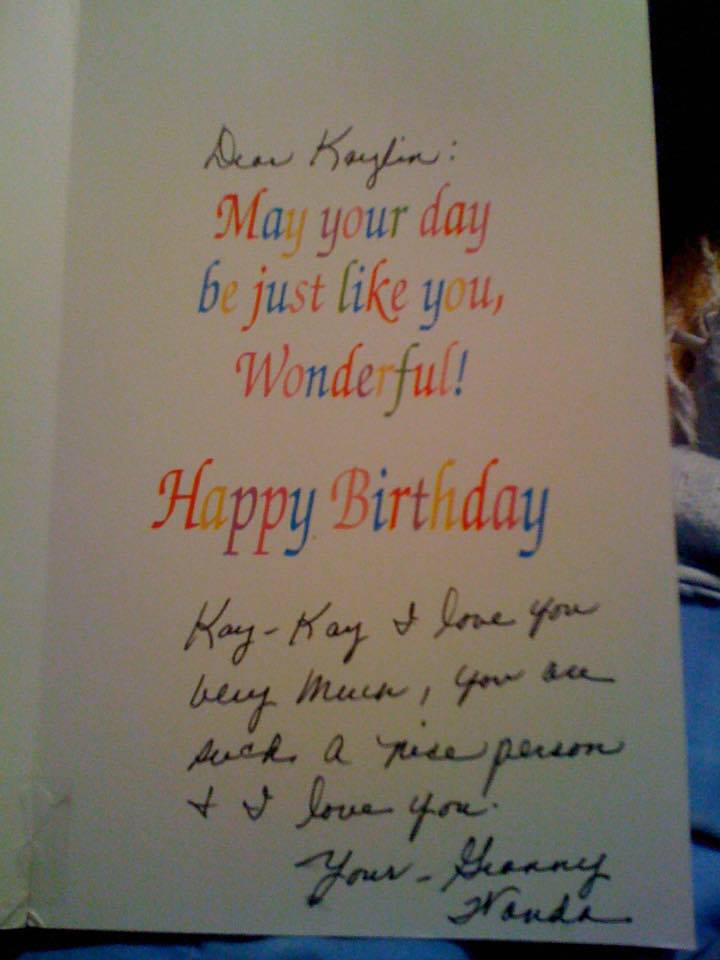 Dear Kaylin:
May your day
be just like you,
Wonderful!
Happy Birthday
Kay-Kay I love you
very much, you are
such a nise person
& I love you.
Your - Granny
Wanda